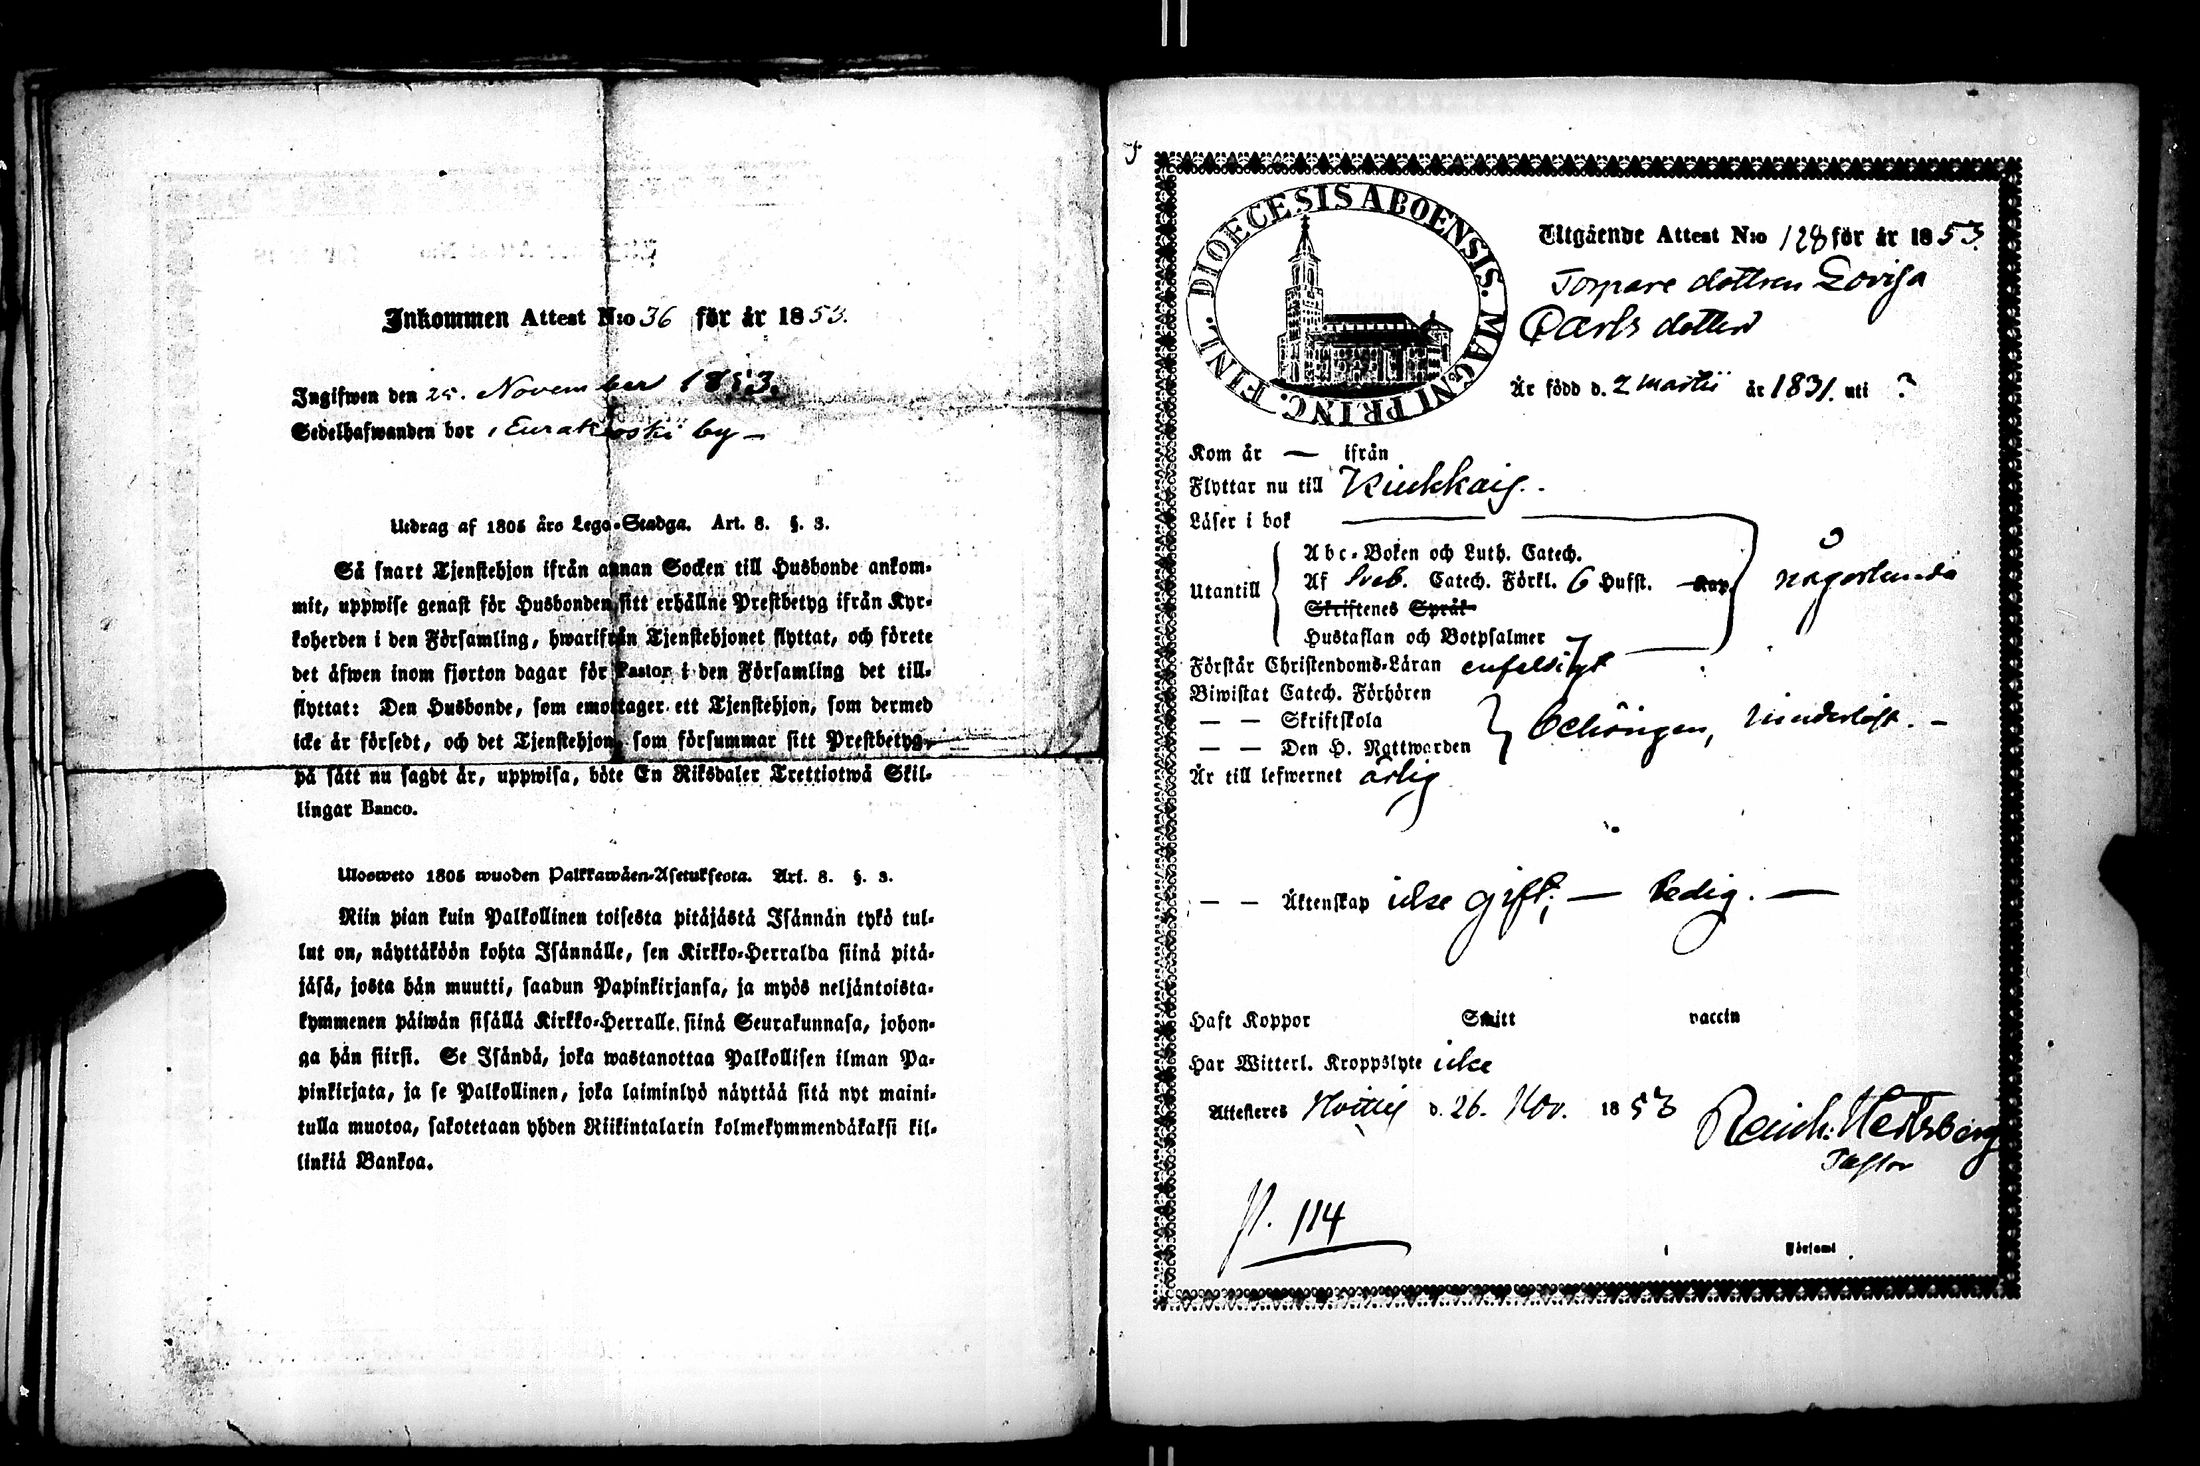 Inkommen Attest N:o 36 för år 1853.
Ingifwen den 25. November 1853.
Sedelhafwanden bor i Eurakoski by —
Utdrag af 1805 års Lego-Stadga. Art. 8. §. 3.
Så snart Tjenstehjon ifrån annan Socken till Husbonde ankom-
mit, uppwise genast för Husbonden sitt erhållne Prestbetyg ifrån Kyr-
koherden i den Församling, hwarifrån Tjenstehjonet flyttat, och förete
det äfwen inom fjorton dagar för Pastor i den Församling det till-
flyttat: Den Husbonde, som emottager ett Tjenstehjon, som dermed
icke är försedt, och det Tjenstehjon, som försummar sitt Prestbetyg,
på sätt nu sagdt är, uppwisa, böte En Riksdaler Trettiotwå Skil-
lingar Banco.
Ulosweto 1805 wuoden Palkkawäen-Asetuksesta. Art. 8. §. 3.
Niin pian kuin Palkollinen toisesta pitäjästä Isännän tykö tul-
lut on, näyttäköön kohta Isännälle, sen Kirkko-Herralda siinä pitä-
jäsä, josta hän muutti, saadun Papinkirjansa, ja myös neljäntoista-
kymmenen päiwän sisällä Kirkko-Herralle siinä Seurakunnasa, johon-
ga hän siirsi. Se Isändä, joka wastanottaa Palkollisen ilman Pa-
pinkirjata, ja se Palkollinen, joka laiminlyö näyttää sitä nyt maini-
tulla muotoa, sakotetaan yhden Riikintalarin kolmekymmendäkaksi kil-
linkiä Bankoa.
DIOECESIS ABOENSIS. MAGNI PRINC. FINL.
Utgående Attest N:o 128 för år 1853.
Torpare dottren Lovisa
Carls dotter
Är född d. 2 Martii år 1831. uti ?
Kom år — ifrån
Flyttar nu till Kiukkais.
Läser i bok
Utantill
Abc-Boken och Luth. Catech.
Af Sveb. Catech. Förkl. 6 Hufst. Kap
Skriftenes Språk
Hustaflan och Botpsalmer
någorlunda
Förstår Christendoms-Läran enfaldigt
Biwistat Catech. Förhören
— — Skriftskola
— — Den H. Nattwarden
behörigen, hinderlöst. —
Är till lefwernet ärlig
— — Äktenskap icke gift; — ledig. —
Haft Koppor Smitt vaccin
Har Witterl. Kroppslyte icke
Attesteres Hvittis d. 26. Nov. 1853
Pastor
p. 114
i Församl.